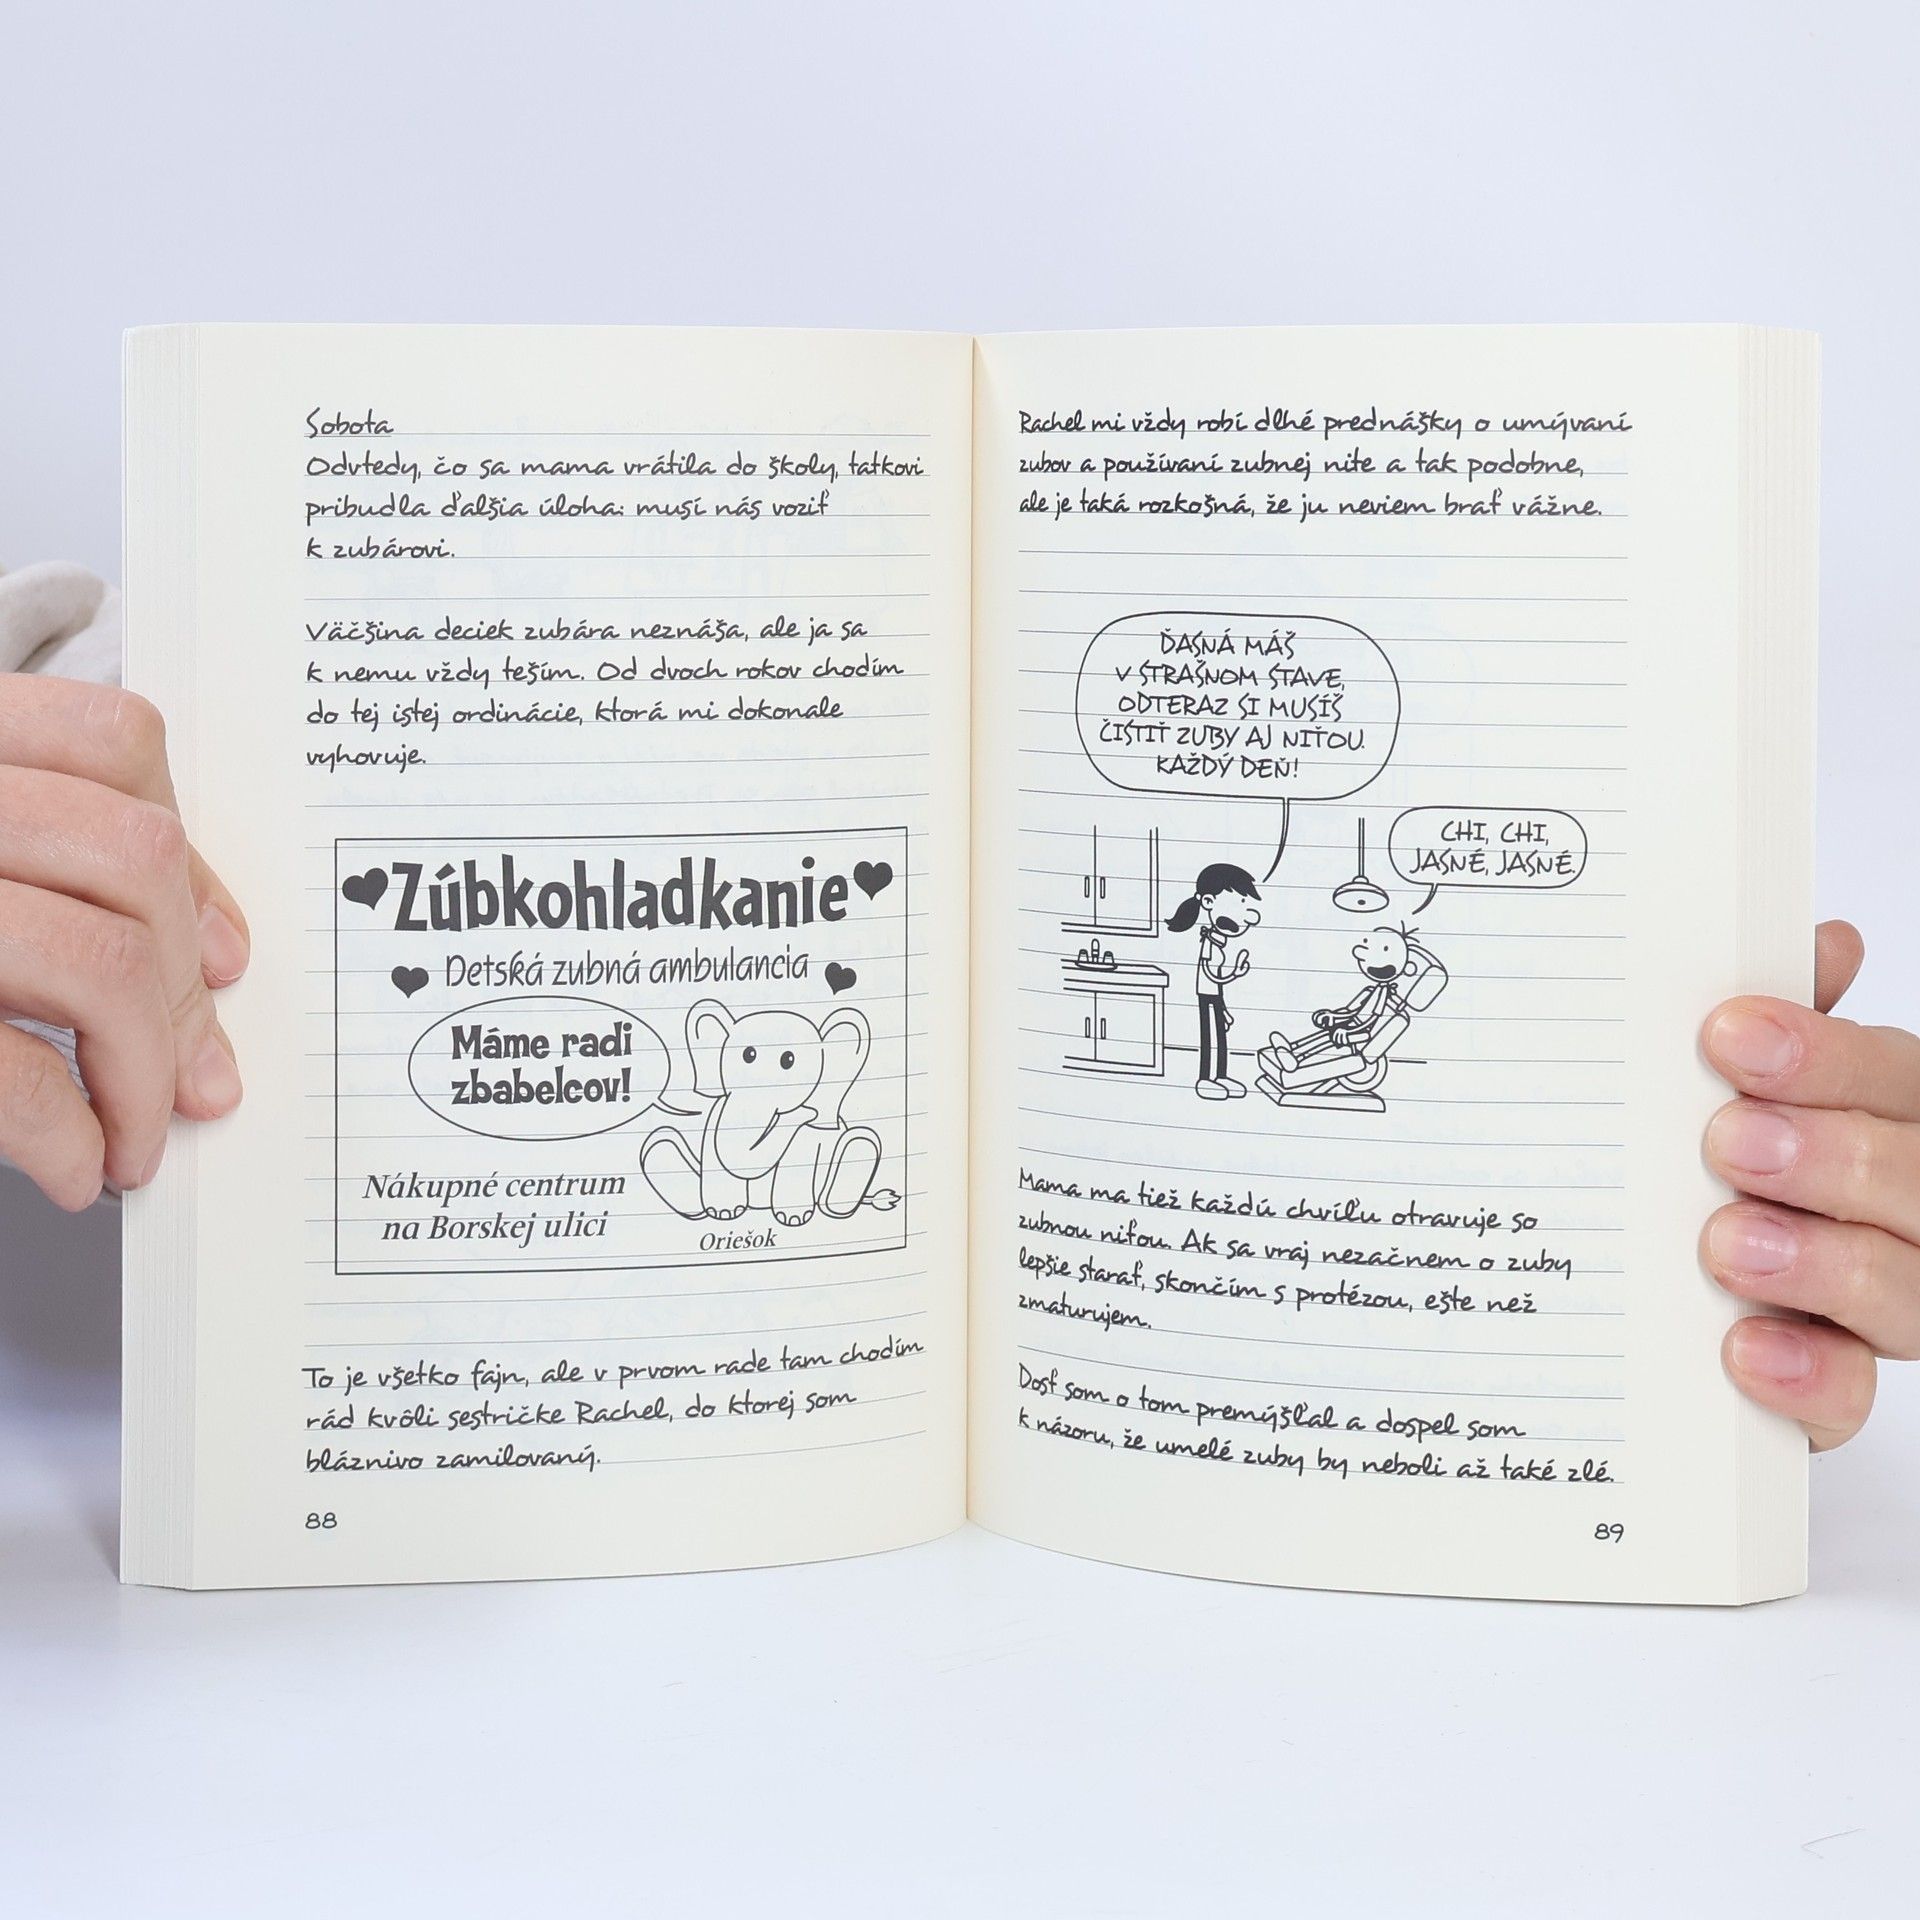 Sobota
Odvtedy, čo sa mama vrátila do školy, tatkovi
pribudla ďalšia úloha: musí nás voziť
k zubárovi.
Väčšina deciek zubára neznáša, ale ja sa
k nemu vždy teším. Od dvoch rokov chodím
do tej istej ordinácie, ktorá mi dokonale
vyhovuje.
Zúbkohladkanie
Detská zubná ambulancia
Máme radi
zbabelcov!
Nákupné centrum
na Borskej ulici
Oriešok
To je všetko fajn, ale v prvom rade tam chodím
rád kvôli sestričke Rachel, do ktorej som
bláznivo zamilovaný.
88
Rachel mi vždy robí dlhé prednášky o umývaní
zubov a používaní zubnej nite a tak podobne,
ale je taká rozkošná, že ju neviem brať vážne.
ĎASNÁ MÁŠ
V STRAŠNOM STAVE,
ODTERAZ SI MUSÍŠ
ČISTIŤ ZUBY AJ NIŤOU
KAŽDÝ DEŇ!
CHI, CHI,
JASNÉ, JASNÉ.
Mama ma tiež každú chvíľu otravuje so
zubnou niťou. Ak sa vraj nezačnem o zuby
lepšie starať, skončím s protézou, ešte než
zmaturujem.
Dosť som o tom premýšľal a dospel som
k názoru, že umelé zuby by neboli až také zlé.
89